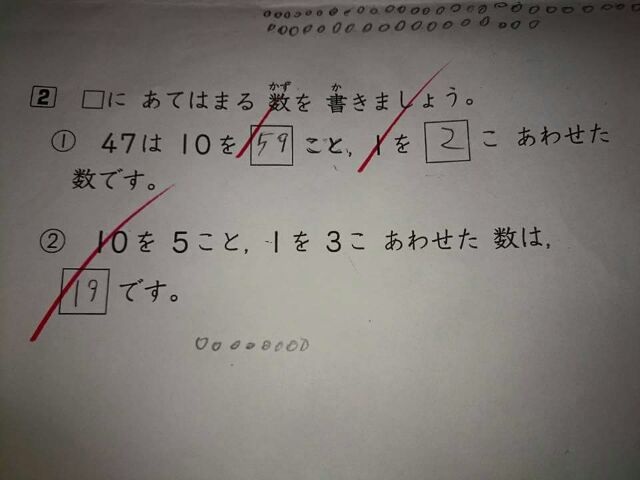 2 □に あてはまる 数を 書きましょう。
かず か
① 47は 10を 59 こと, 1を 2 こ あわせた
数です。
② 10を 5こと, 1を 3こ あわせた 数は,
19 です。